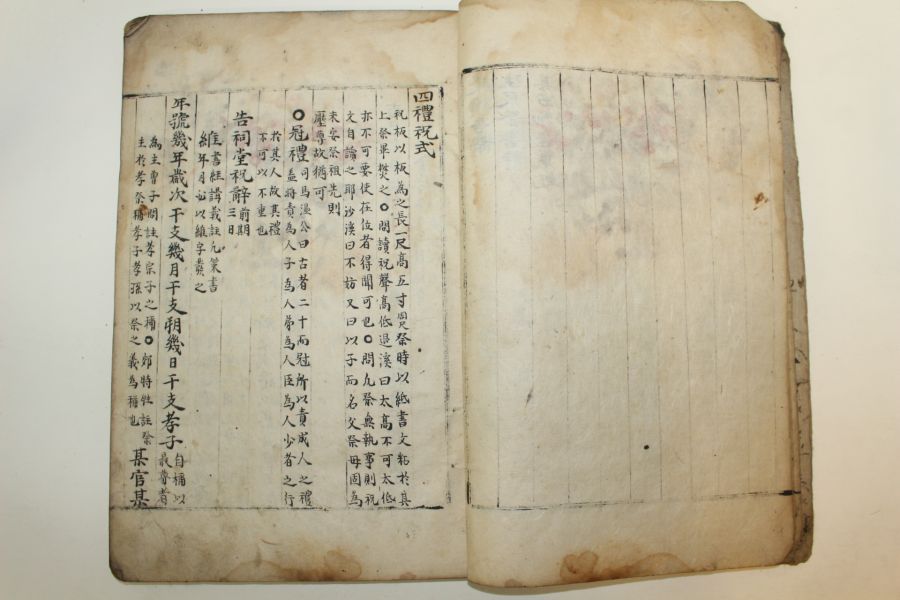 四禮祝式
祝板以板為之長一尺高五寸周尺祭時以紙書文粘於其
上祭畢焚之○問讀祝聲高低退溪曰太高不可太低
亦不可要使在位者得聞可也○問凡祭無執事則祝
文自讀之耶沙溪曰不妨又曰以子而名父祭母固為
未安祭祖先則
壓尊故猶可
○冠禮司馬溫公曰古者二十而冠所以責成人之禮
盖將責為人子為人弟為人臣為人少者之行
於其人故其禮
不可以不重也
告祠堂祝辭前期三日
維書經講義註凡策書
紀年月必以維字發之
年號幾年歲次干支幾月干支朔幾日干支孝子自稱以最尊者
為主曾子問註孝宗子之稱○郊特牲註祭
主於孝祭稱孝子孝孫以祭之義為稱也某官某